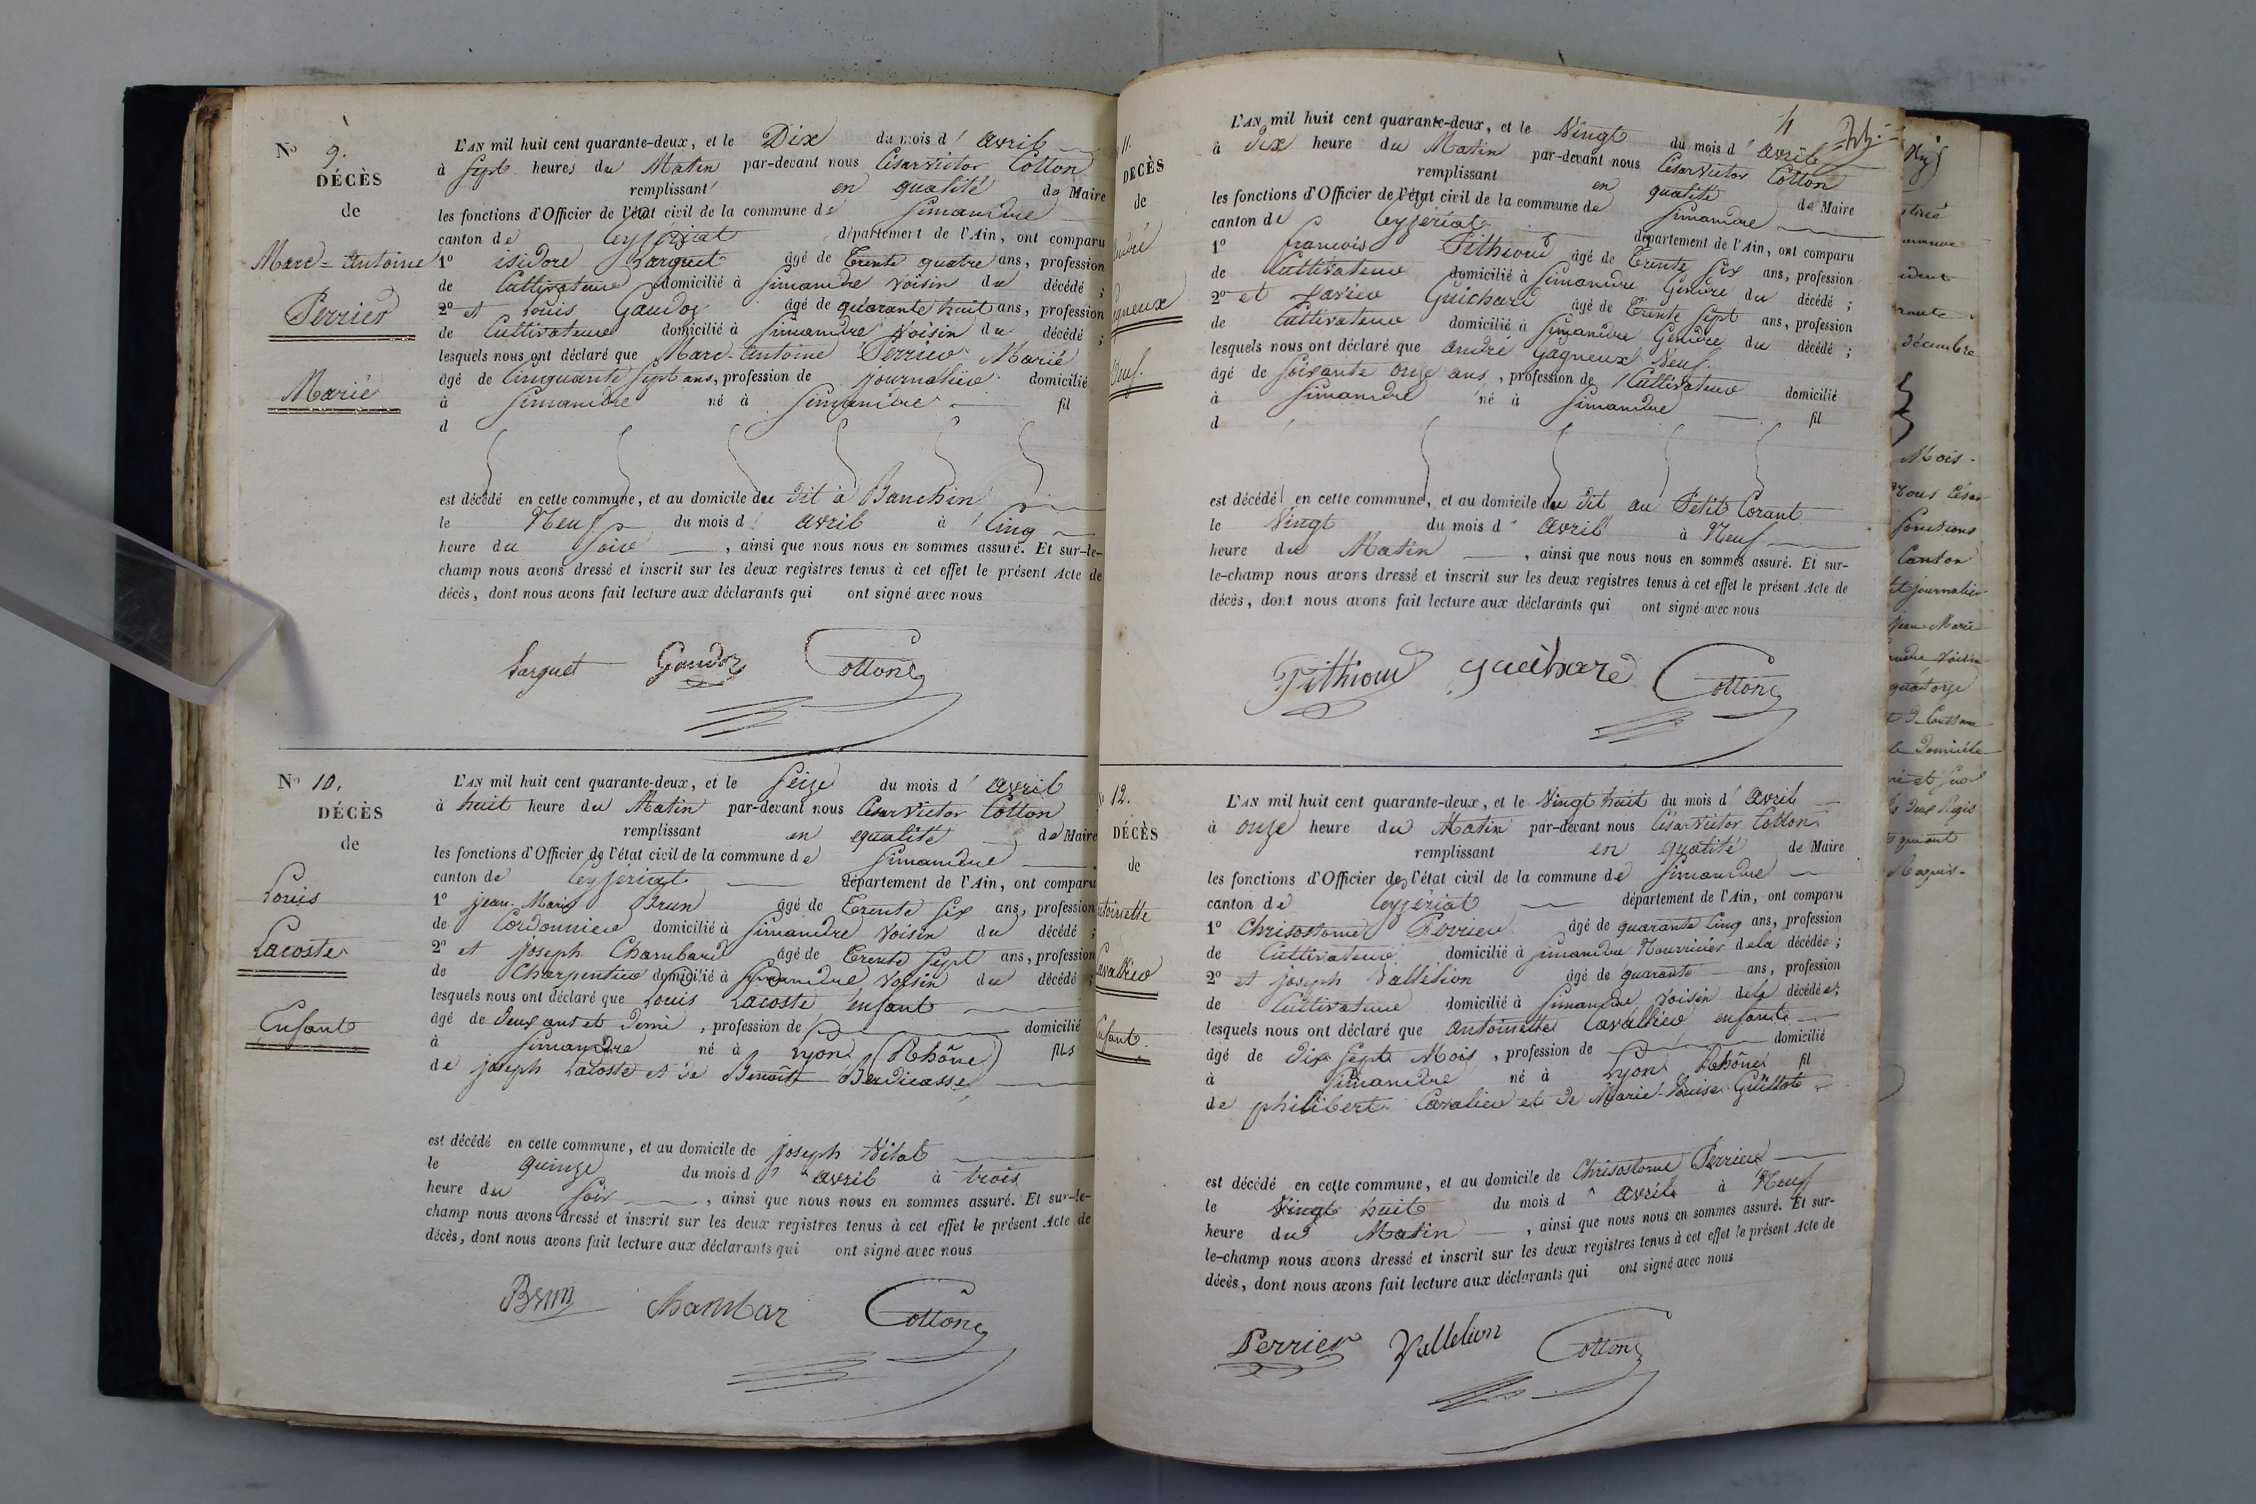 N° 9.
DÉCÈS
de
Marc-Antoine
Perrier
Marié
L'AN mil huit cent quarante-deux, et le Dix du mois d' avril
à sept heures du Matin par-devant nous César Victor Cotton
remplissant en qualité de Maire
les fonctions d'Officier de l'état civil de la commune de Simandre
canton de Ceyzériat département de l'Ain, ont comparu
1° isidore Larguet âgé de Trente quatre ans, profession
de Cultivateur domicilié à Simandre Voisin du décédé ;
2° et Louis Gaudoz âgé de quarante huit ans, profession
de Cultivateur domicilié à Simandre Voisin du décédé ;
lesquels nous ont déclaré que Marc-Antoine Perrier Marié
âgé de Cinquante Sept ans, profession de journalier domicilié
à Simandre né à Simandre fil
d
est décédé en cette commune, et au domicile du dit à Banchin
le Neuf du mois d' avril à Cinq
heure du Soir, ainsi que nous nous en sommes assuré. Et sur-le-
champ nous avons dressé et inscrit sur les deux registres tenus à cet effet le présent Acte de
décès, dont nous avons fait lecture aux déclarants qui ont signé avec nous
Larguet Gaudoz Cotton
N° 10.
DÉCÈS
de
Louis
Lacoste
Enfant
L'AN mil huit cent quarante-deux, et le Seize du mois d' avril
à huit heure du Matin par-devant nous César Victor Cotton
remplissant en qualité de Maire
les fonctions d'Officier de l'état civil de la commune de Simandre
canton de Ceyzériat département de l'Ain, ont comparu
1° jean-Marie Brun âgé de Trente Six ans, profession
de Cordonnier domicilié à Simandre Voisin du décédé ;
2° et joseph Chambard âgé de Trente Sept ans, profession
de Charpentier domicilié à Simandre Voisin du décédé ;
lesquels nous ont déclaré que Louis Lacoste enfant
âgé de Deux ans et Demi, profession de domicilié
à Simandre né à Lyon (Rhône) fils
de joseph Lacoste et de Benoîte Berdicasse,
est décédé en cette commune, et au domicile de joseph Vilat
le quinze du mois d' avril à trois
heure du Soir, ainsi que nous nous en sommes assuré. Et sur-le-
champ nous avons dressé et inscrit sur les deux registres tenus à cet effet le présent Acte de
décès, dont nous avons fait lecture aux déclarants qui ont signé avec nous
Brun Chambar Cotton
4
11.
DÉCÈS
de
L'AN mil huit cent quarante-deux, et le Vingt du mois d' avril
à dix heure du Matin par-devant nous César Victor Cotton
remplissant en qualité de Maire
les fonctions d'Officier de l'état civil de la commune de Simandre
canton de Ceyzériat département de l'Ain, ont comparu
1° francois Pithioud âgé de Trente Six ans, profession
de Cultivateur domicilié à Simandre Gendre du décédé ;
2° et Xavier Guichard âgé de Trente Sept ans, profession
de Cultivateur domicilié à Simandre Gendre du décédé ;
lesquels nous ont déclaré que andré Gagneux Veuf.
âgé de Soixante onze ans, profession de Cultivateur domicilié
à Simandre né à Simandre fil
d
est décédé en cette commune, et au domicile du dit au Petit Corant
le Vingt du mois d' avril à Neuf
heure du Matin, ainsi que nous nous en sommes assuré. Et sur-
le-champ nous avons dressé et inscrit sur les deux registres tenus à cet effet le présent Acte de
décès, dont nous avons fait lecture aux déclarants qui ont signé avec nous
Pithioud guichard Cotton
12.
DÉCÈS
de
L'AN mil huit cent quarante-deux, et le Vingt huit du mois d' avril
à onze heure du Matin par-devant nous César Victor Cotton
remplissant en qualité de Maire
les fonctions d'Officier de l'état civil de la commune de Simandre
canton de Ceyzériat département de l'Ain, ont comparu
1° Chrisostome Perrier âgé de quarante Cinq ans, profession
de Cultivateur domicilié à Simandre Nourricier de la décédée ;
2° et joseph Vallélion âgé de quarante ans, profession
de Cultivateur domicilié à Simandre Voisin de la décédée ;
lesquels nous ont déclaré que antoinette Cavallier enfante
âgé de Dix Sept Mois, profession de domicilié
à Simandre né à Lyon Rhône fil
de philibert Cavalier et de Marie-Louise Guillote
est décédé en cette commune, et au domicile de Chrisostome Perrier
le Vingt huit du mois d' avril à Neuf
heure du Matin, ainsi que nous nous en sommes assuré. Et sur-
le-champ nous avons dressé et inscrit sur les deux registres tenus à cet effet le présent Acte de
décès, dont nous avons fait lecture aux déclarants qui ont signé avec nous
Perrier Vallelion Cotton